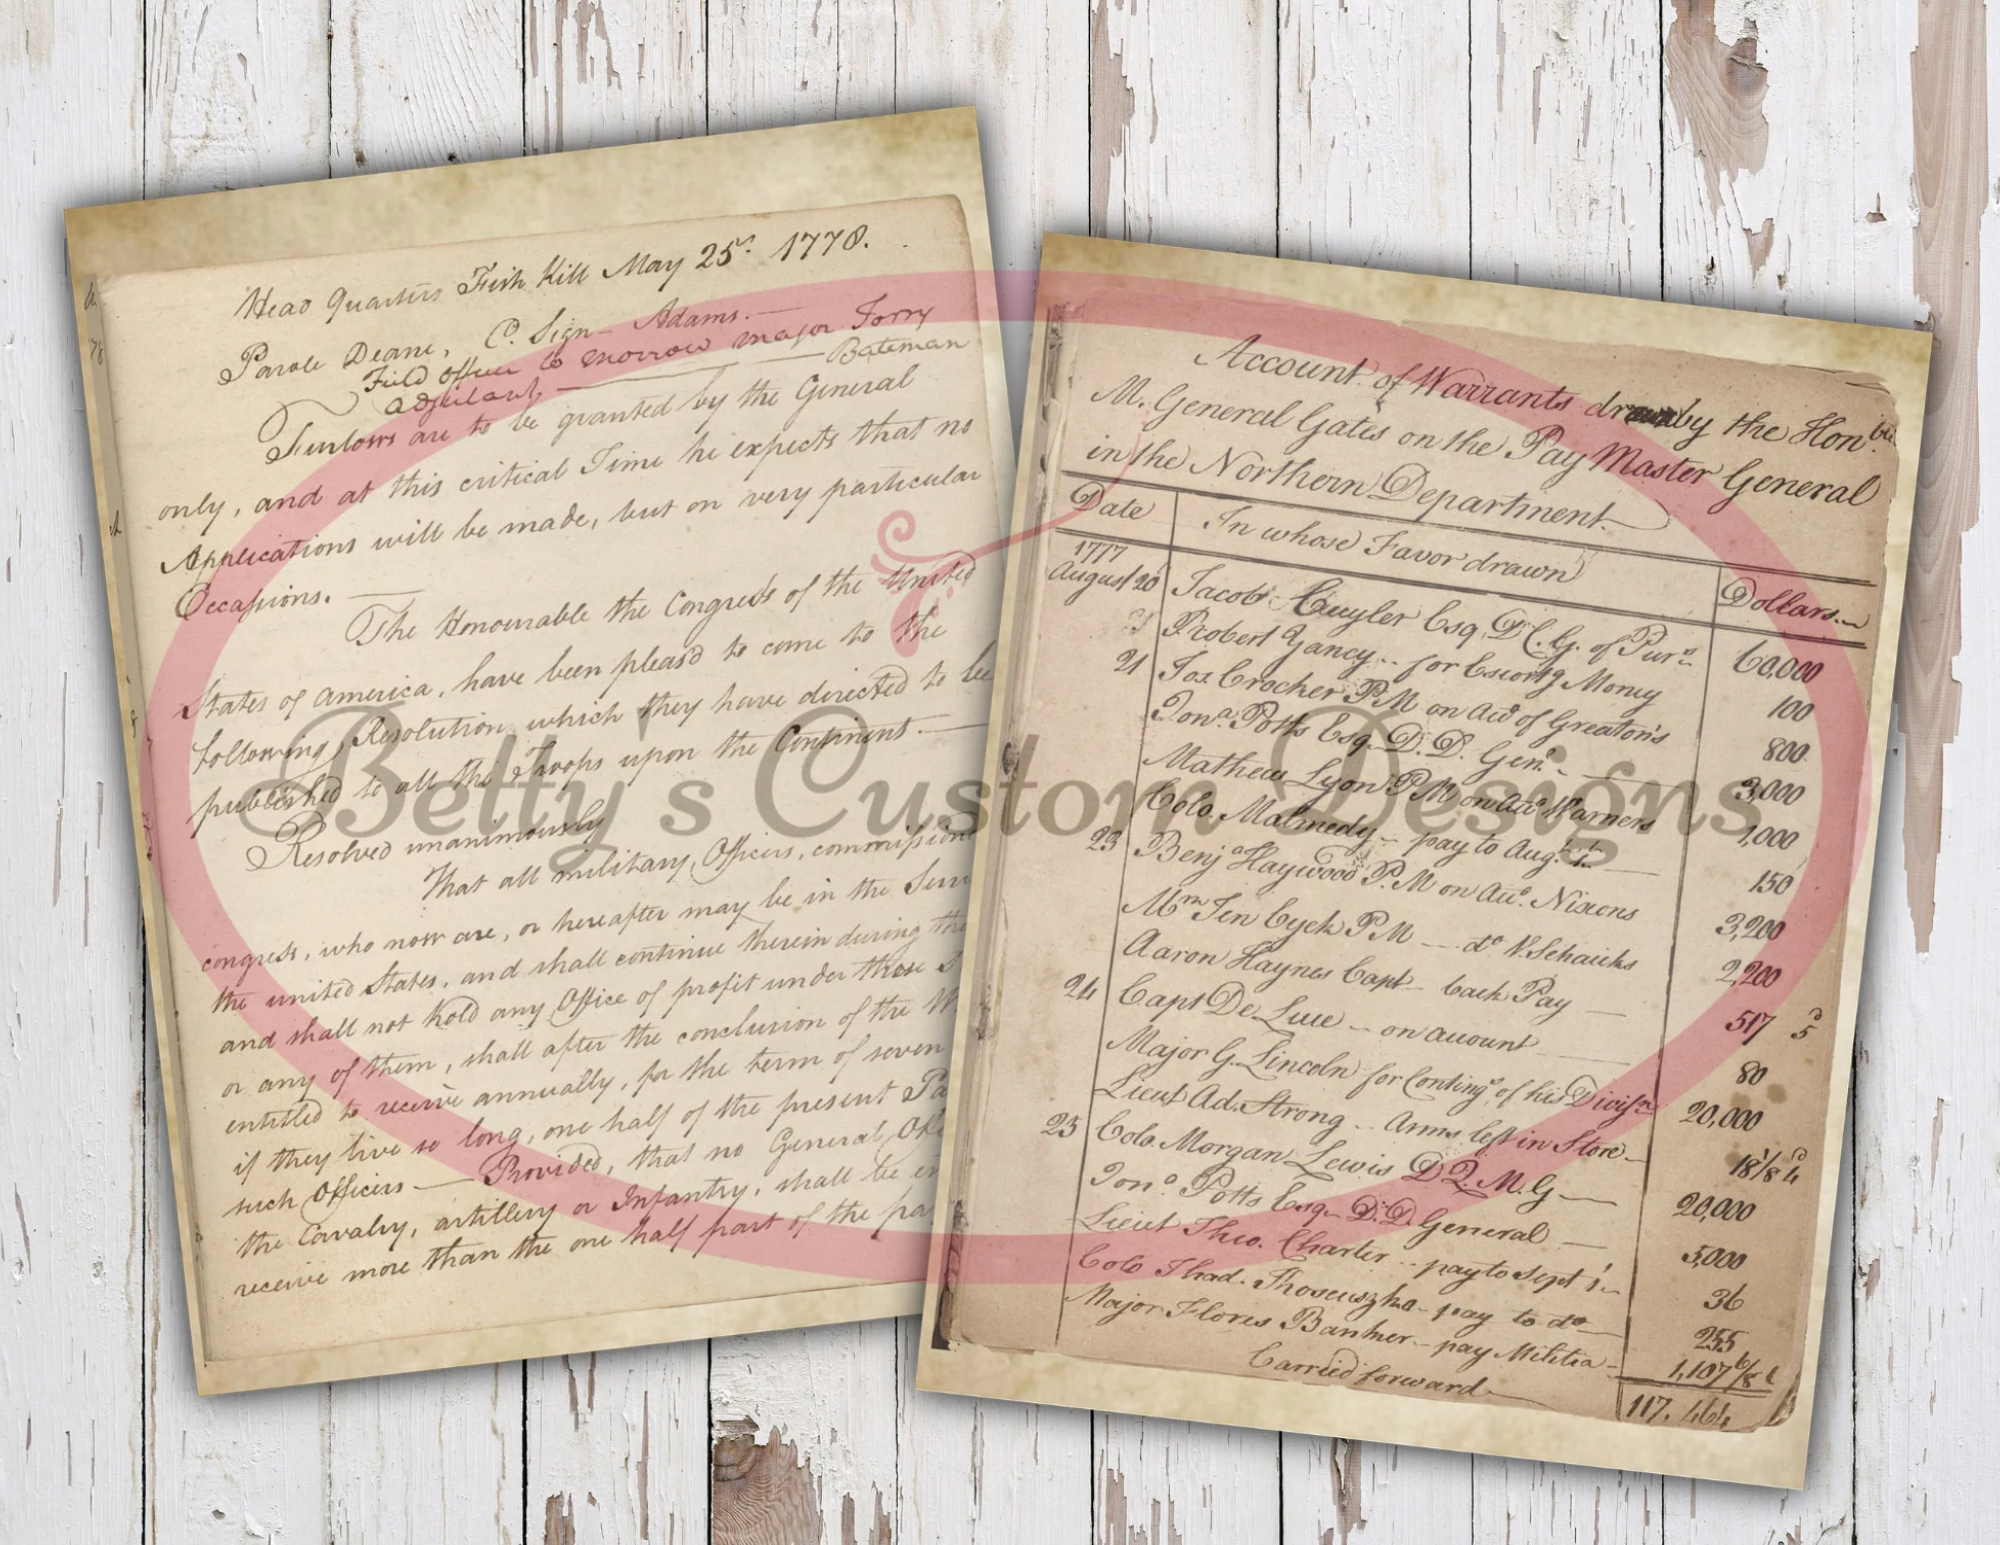 Head Quarters Fish Kill May 25th. 1778.
Parole Deane, C. Sign - Adams. -
Field officer to morrow major Torry
adjutant, Bateman
Furlows are to be granted by the General
only, and at this critical Time he expects that no
Applications will be made, but on very particular
Occasions.
The Honourable the Congress of the United
States of America, have been pleas'd to come to the
following Resolution, which they have directed to be
published to all the Troops upon the Continent.
Resolved unanimously
That all military Officers, commissione
congress, who now are, or hereafter may be in the Serv
the united States, and shall continue therein during the
and shall not hold any Office of profit under these S
or any of them, shall after the conclusion of the W
entitled to receive annually, for the term of seven
if they live so long, one half of the present Pa
such Officers — Provided, that no General Offi
the Cavalry, artillery or Infantry, shall be en
receive more than the one half part of the pa
Account of Warrants drawn by the Honble.
M. General Gates on the Pay Master General
in the Northern Department.
Date In whose Favor drawn Dollars
1777
August 20 Jacob Cuyler Esq. D C. G. of Purs 60,000
Robert Yancy .. for Escortg Money 100
21 Jos Crocker P M on Acct of Greaton's 800
Jona. Potts Esq. D. D. Genl. - 3,000
Mathew Lyon P M on Acco. Warners 1,000
Colo. Malmedy - pay to Augt. 1t. 150
23 Benja Haywood P. M on Acco. Nixons 3,200
Mm Ten Eyck P M - do V. Schaicks 2,200
Aaron Haynes Capt - back Pay 517 5
24 Capt De Luce - on account 80
Major G. Lincoln for Contings. of his Divisn 20,000
Lieut Ad. Strong .. Arms left in Store 18
25 Colo. Morgan Lewis D Q. M. G 20,000
Jona. Potts Esq. D. D. General 5,000
Lieut Theo. Charter .. pay to Sept 1. 36
Colo Thad. Thosciuszka - pay to do 255
Major Flores Banker - pay Militia 1,107 6/8
Carried forward 117,464
Betty's Custom Designs